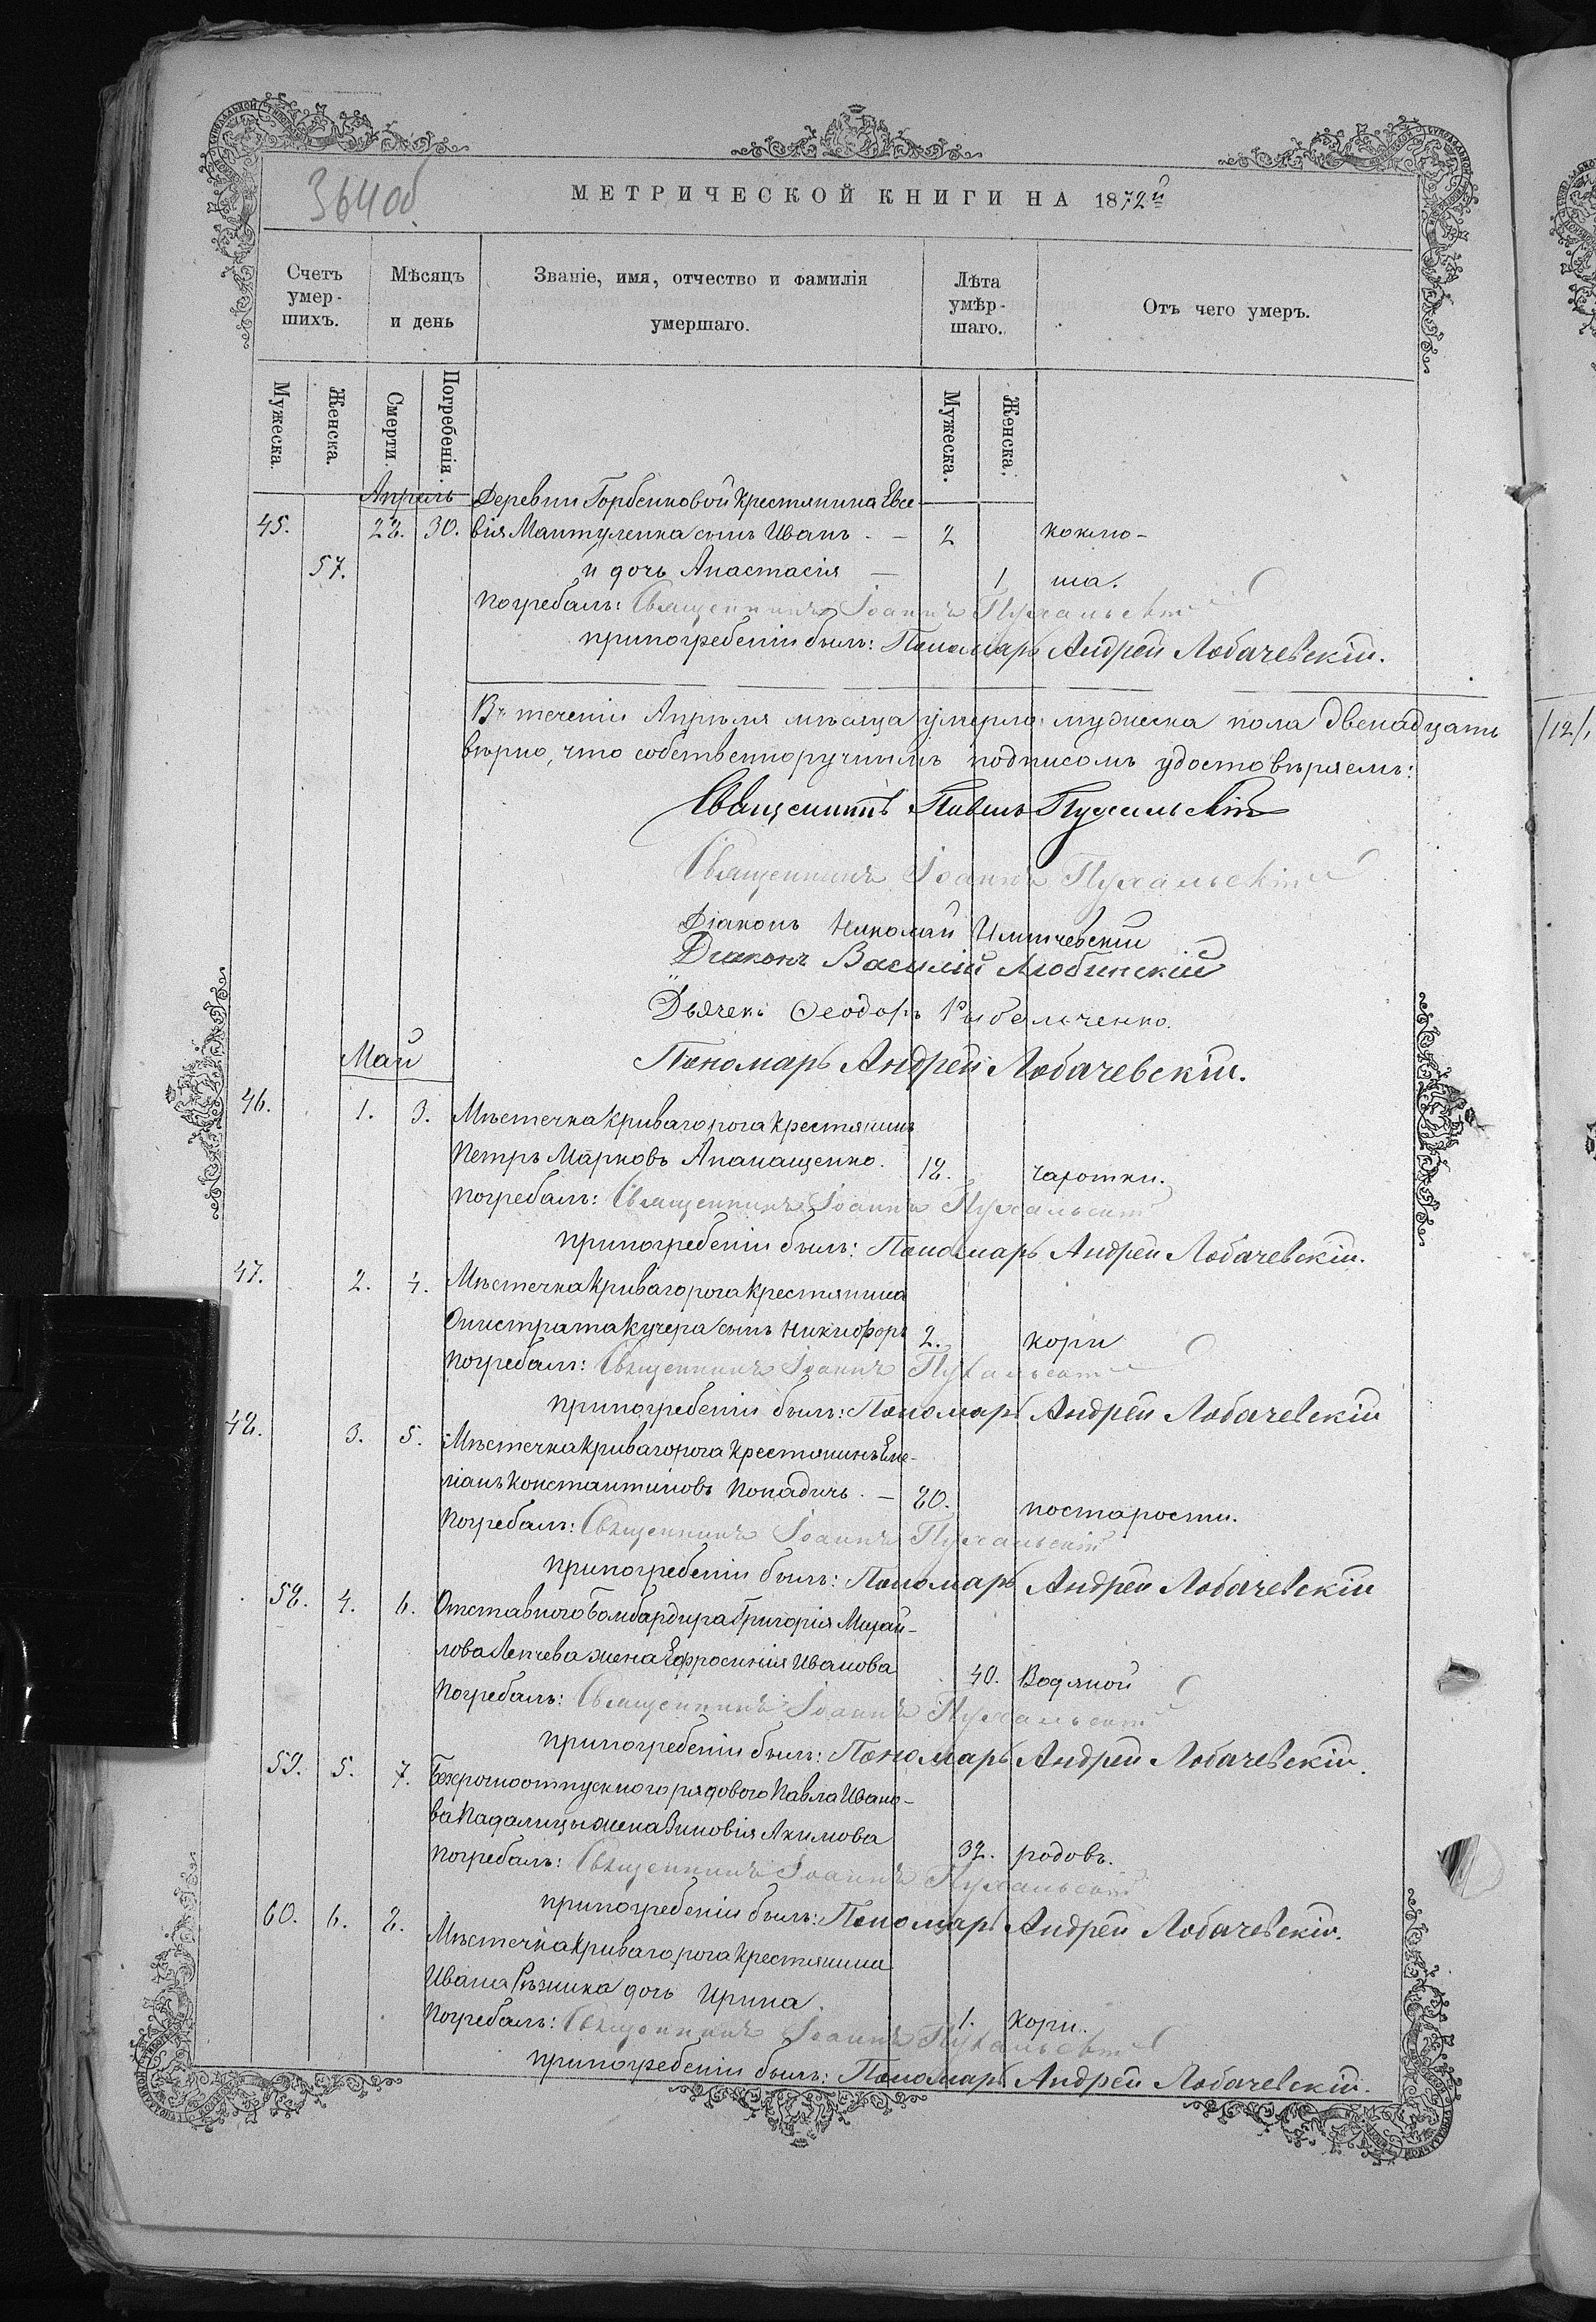 364об
МЕТРИЧЕСКОЙ КНИГИ НА 1872й
Счетъ умер-шихъ.
Мѣсяцъ и день
Званіе, имя, отчество и фамилія умершаго.
Лѣта умѣр-шаго.
Отъ чего умеръ.
Мужеска. Женска. Смерти. Погребенія. Мужеска. Женска.
Апрель Деревни Горбенковой крестянина Евсе-
45. 28. 30. вія Мантуленка сынъ Иванъ. — 2 коклю-
57. и дочь Анастасія — 1 ша.
Погребалъ: Священникъ Іоаннъ Пухальскій
при погребеніи былъ: Пономарь Андрей Лобачевскій.
Въ теченіи Апрѣля мѣсяца умерло мужеска пола двенадцать /12/,
вѣрно, что собственноручнымъ подписомъ удостовѣряемъ:
Священникъ Павелъ Пухальскій
Священникъ Іоаннъ Пухальскій
Діаконъ Николай
Діаконъ Василій Любинскій
Дьячекъ Ѳеодоръ
Май Пономарь Андрей Лобачевскій.
46. 1. 3. Мѣстечка Криваго рога крестянинъ
Петръ Марковъ Апанащенко. 18. чахотки.
Погребалъ: Священникъ Іоаннъ Пухальскій
при погребеніи былъ: Пономарь Андрей Лобачевскій.
47. 2. 4. Мѣстечка Криваго рога крестянина
Онистрата Кучера сынъ Никифоръ 2. кори
Погребалъ: Священникъ Іоаннъ Пухальскій
при погребеніи былъ: Пономарь Андрей Лобачевскій
48. 3. 5. Мѣстечка Криваго рога крестянинъ Еме-
ліанъ Константиновъ Попадичь. — 80. по старости.
Погребалъ: Священникъ Іоаннъ Пухальскій
при погребеніи былъ: Пономарь Андрей Лобачевскій
58. 4. 6. Отставного Бомбардира Григорія Михай-
лова жена Ефросинія Иванова 40. Водяной
Погребалъ: Священникъ Іоаннъ Пухальскій
при погребеніи былъ: Пономарь Андрей Лобачевскій.
59. 5. 7. Безсрочноотпускного рядового Павла Ивано-
ва Падалицы жена Зиновія Акимова 32. родовъ.
Погребалъ: Священникъ Іоаннъ Пухальскій
при погребеніи былъ: Пономарь Андрей Лобачевскій.
60. 6. 8. Мѣстечка Криваго рога крестянина
Ивана Рѣзника дочь Ирина. 1. кори.
Погребалъ: Священникъ Іоаннъ Пухальскій
при погребеніи былъ: Пономарь Андрей Лобачевскій.